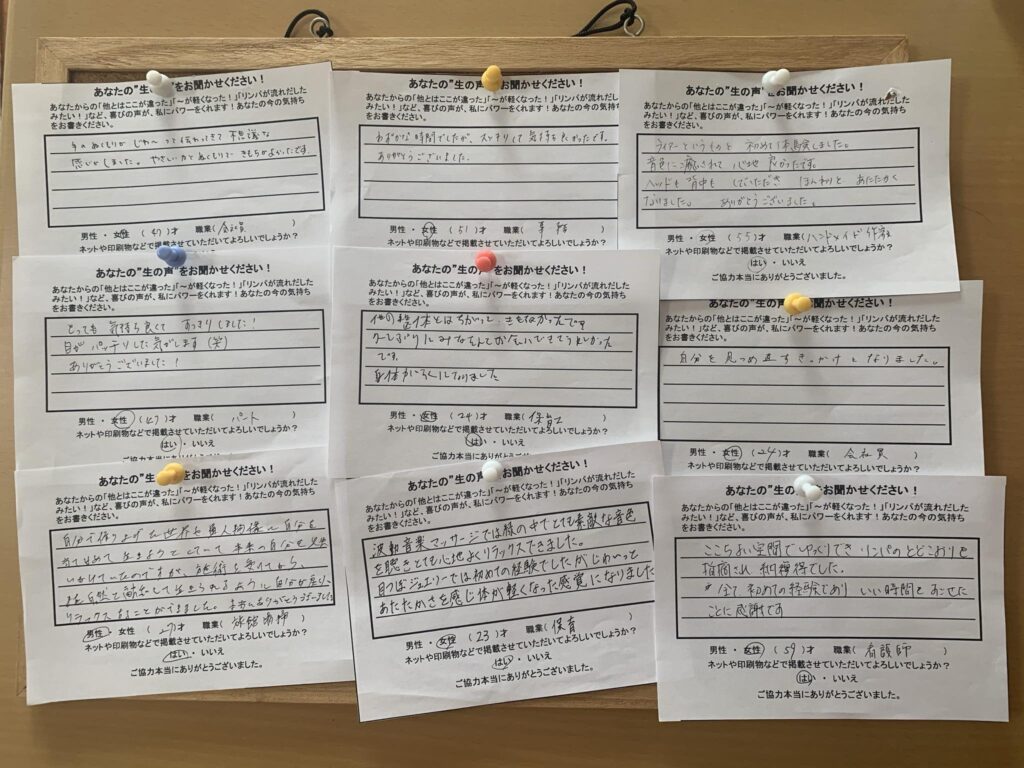 あなたの"生の声"をお聞かせください！
あなたからの「他とはここが違った」「～が軽くなった！」「リンパが流れだした
みたい！」など、喜びの声が、私にパワーをくれます！あなたの今の気持ち
をお書きください。
手のぬくもりが じわーっと伝わってきて 不思議な
感じがしました。やさしい力とぬくもりで きもちがよかったです。
男性・女性 ( ) 才 職業( 会社員
ネットや印刷物などで掲載させていただいてよろしいでしょうか？
あなたの"生の声"をお聞かせください！
あなたからの「他とはここが違った」「～が軽くなった！」「リンパが流れだし
みたい！」など、喜びの声が、私にパワーをくれます！あなたの今の気持
をお書きください。
わずかな時間でしたが、スッキリして気持ち良かったです。
ありがとうございました。
男性・女性 (51) 才 職業( 事務
ネットや印刷物などで掲載させていただいてよろしいでしょうか？
あなたの"生の声"をお聞かせください！
あなたからの「他とはここが違った」「～が軽くなった！」「リンパが流れだした
みたい！」など、喜びの声が、私にパワーをくれます！あなたの今の気持ち
をお書きください。
ライアーというものを 初めて体験しました。
音色に癒されて 心地良かったです。
ヘッドも 背中も していただき ほんわりと あたたかく
なりました。 ありがとうございました。
男性・女性 (55) 才 職業(ハンドメイド作家
ネットや印刷物などで掲載させていただいてよろしいでしょうか？
はい ・ いいえ
ご協力本当にありがとうございました。
あなたの"生の声"をお聞かせください！
あなたからの「他とはここが違った」「～が軽くなった！」「リンパが流れだした
みたい！」など、喜びの声が、私にパワーをくれます！あなたの今の気持ち
をお書きください。
とっても 気持ち良くて すっきりしました！
目が パッチリした気がします (笑)
ありがとうございました！
男性・女性 (47) 才 職業( パート )
ネットや印刷物などで掲載させていただいてよろしいでしょうか？
はい ・ いいえ
あなたの"生の声"をお聞かせください！
あなたからの「他とはここが違った」「～が軽くなった！」「リンパが流れだした
みたい！」など、喜びの声が、私にパワーをくれます！あなたの今の気持ち
をお書きください。
他の整体とはちがって、
です。
身体がらくになりました
男性・女性 (24) 才 職業( 保育士 )
ネットや印刷物などで掲載させていただいてよろしいでしょうか？
はい ・ いいえ
あなたの"生の声"をお聞かせください！
あなたからの「他とはここが違った」「～が軽くなった！」「リンパが流れだした
みたい！」など、喜びの声が、私にパワーをくれます！あなたの今の気持ち
をお書きください。
自分を見つめ直すきっかけとなりました。
男性・女性 (24) 才 職業( 会社員
ネットや印刷物などで掲載させていただいてよろしいでしょうか？
あなたの"生の声"をお聞かせください！
あなたからの「他とはここが違った」「～が軽くなった！」「リンパが流れだした
みたい！」など、喜びの声が、私にパワーをくれます！あなたの今の気持ち
をお書きください。
自分で作り上げた世界や 自分を
本来の自分を見失
いかけていたのですが、施術を受けてから、
リラックスすることができました。
男性・女性 (27) 才 職業( )
ネットや印刷物などで掲載させていただいてよろしいでしょうか？
はい ・ いいえ
ご協力本当にありがとうございました。
あなたの"生の声"をお聞かせください！
あなたからの「他とはここが違った」「～が軽くなった！」「リンパが流れだした
みたい！」など、喜びの声が、私にパワーをくれます！あなたの今の気持ち
をお書きください。
波動音楽マッサージでは森の中でとても素敵な音色
を聴きとても心地よくリラックスできました。
耳つぼジュエリーでは初めての経験でしたがじわっと
あたたかさを感じ体が軽くなった感覚になりました
男性・女性 (23) 才 職業( 保育 )
ネットや印刷物などで掲載させていただいてよろしいでしょうか？
はい ・ いいえ
ご協力本当にありがとうございました。
あなたの"生の声"をお聞かせください！
あなたからの「他とはここが違った」「～が軽くなった！」「リンパが流れだした
みたい！」など、喜びの声が、私にパワーをくれます！あなたの今の気持ち
をお書きください。
ここちよい空間でゆっくりでき リンパのとどこおりを
指摘され 納得でした。
全て初めての経験であり いい時間をすごせた
ことに感謝です
男性・女性 (59) 才 職業( 看護師 )
ネットや印刷物などで掲載させていただいてよろしいでしょうか？
はい ・ いいえ
ご協力本当にありがとうございました。